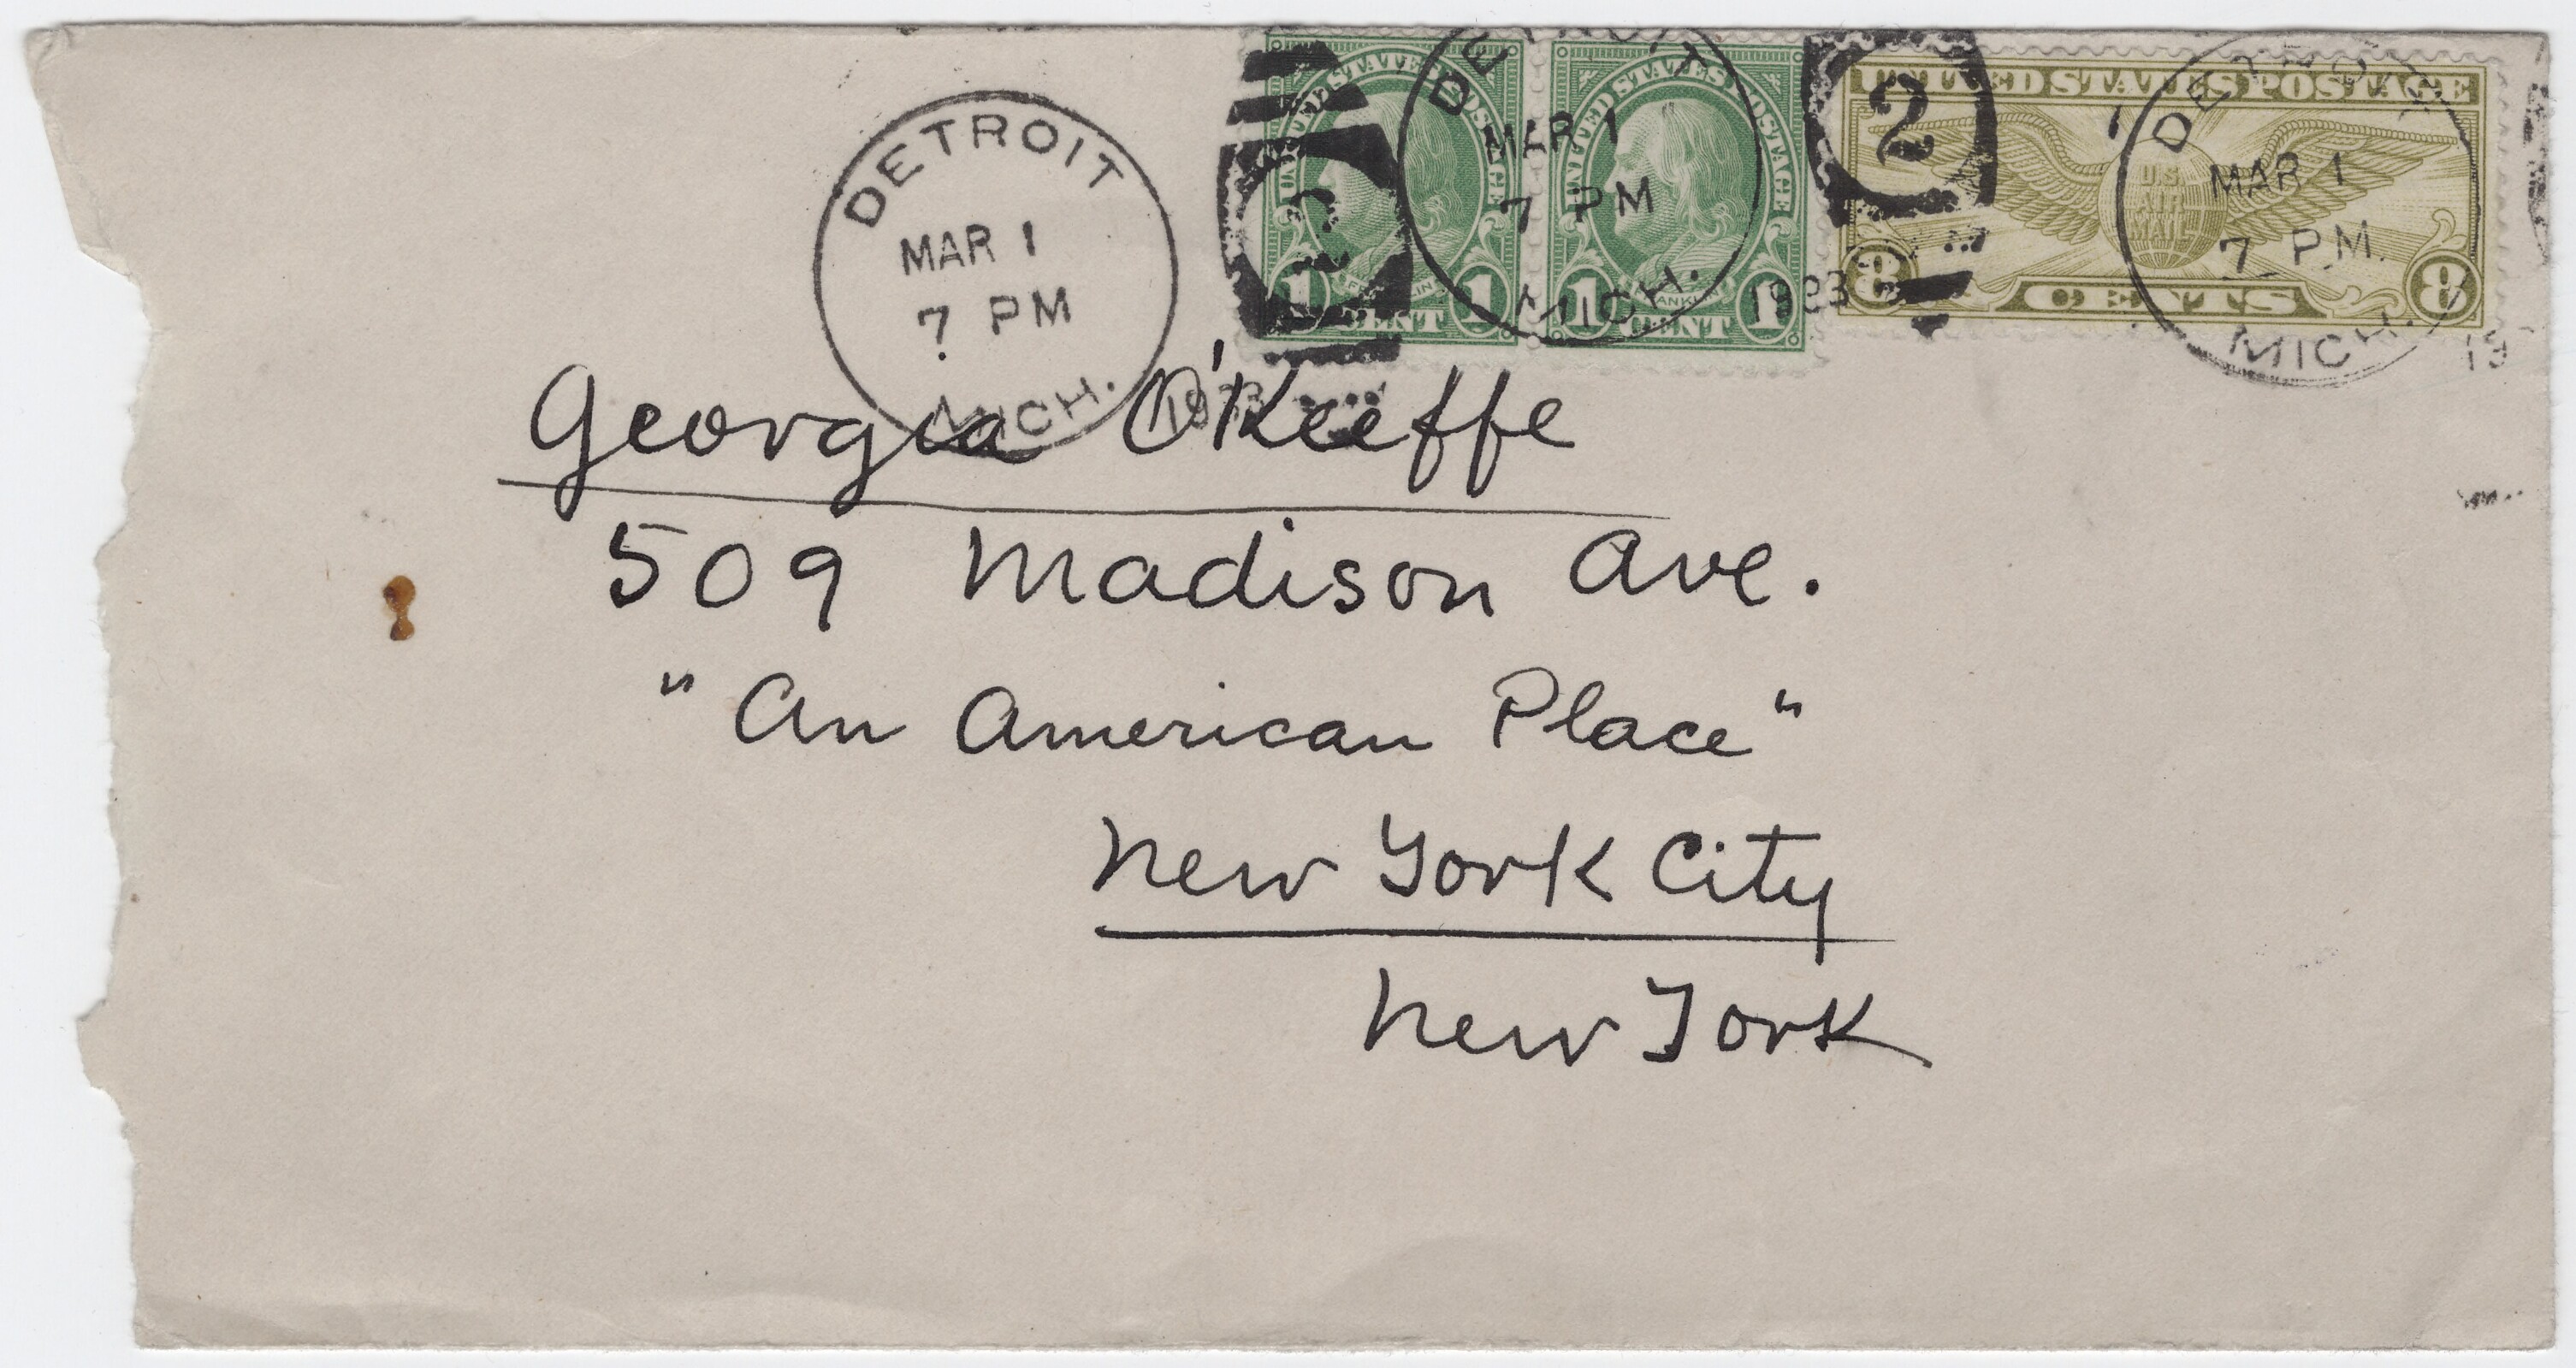 DETROIT
MAR 1
7 PM
MICH.
UNITED STATES POSTAGE
FRANKLIN
1 CENT 1
DETROIT
MAR 1
7 PM
MICH.
UNITED STATES POSTAGE
FRANKLIN
1 CENT 1
2
UNITED STATES POSTAGE
U.S.
AIR
MAIL
8 CENTS 8
DETROIT
MAR 1
7 P.M.
MICH.
19
Georgia O'Keeffe
509 Madison Ave.
"An American Place"
New York City
New York